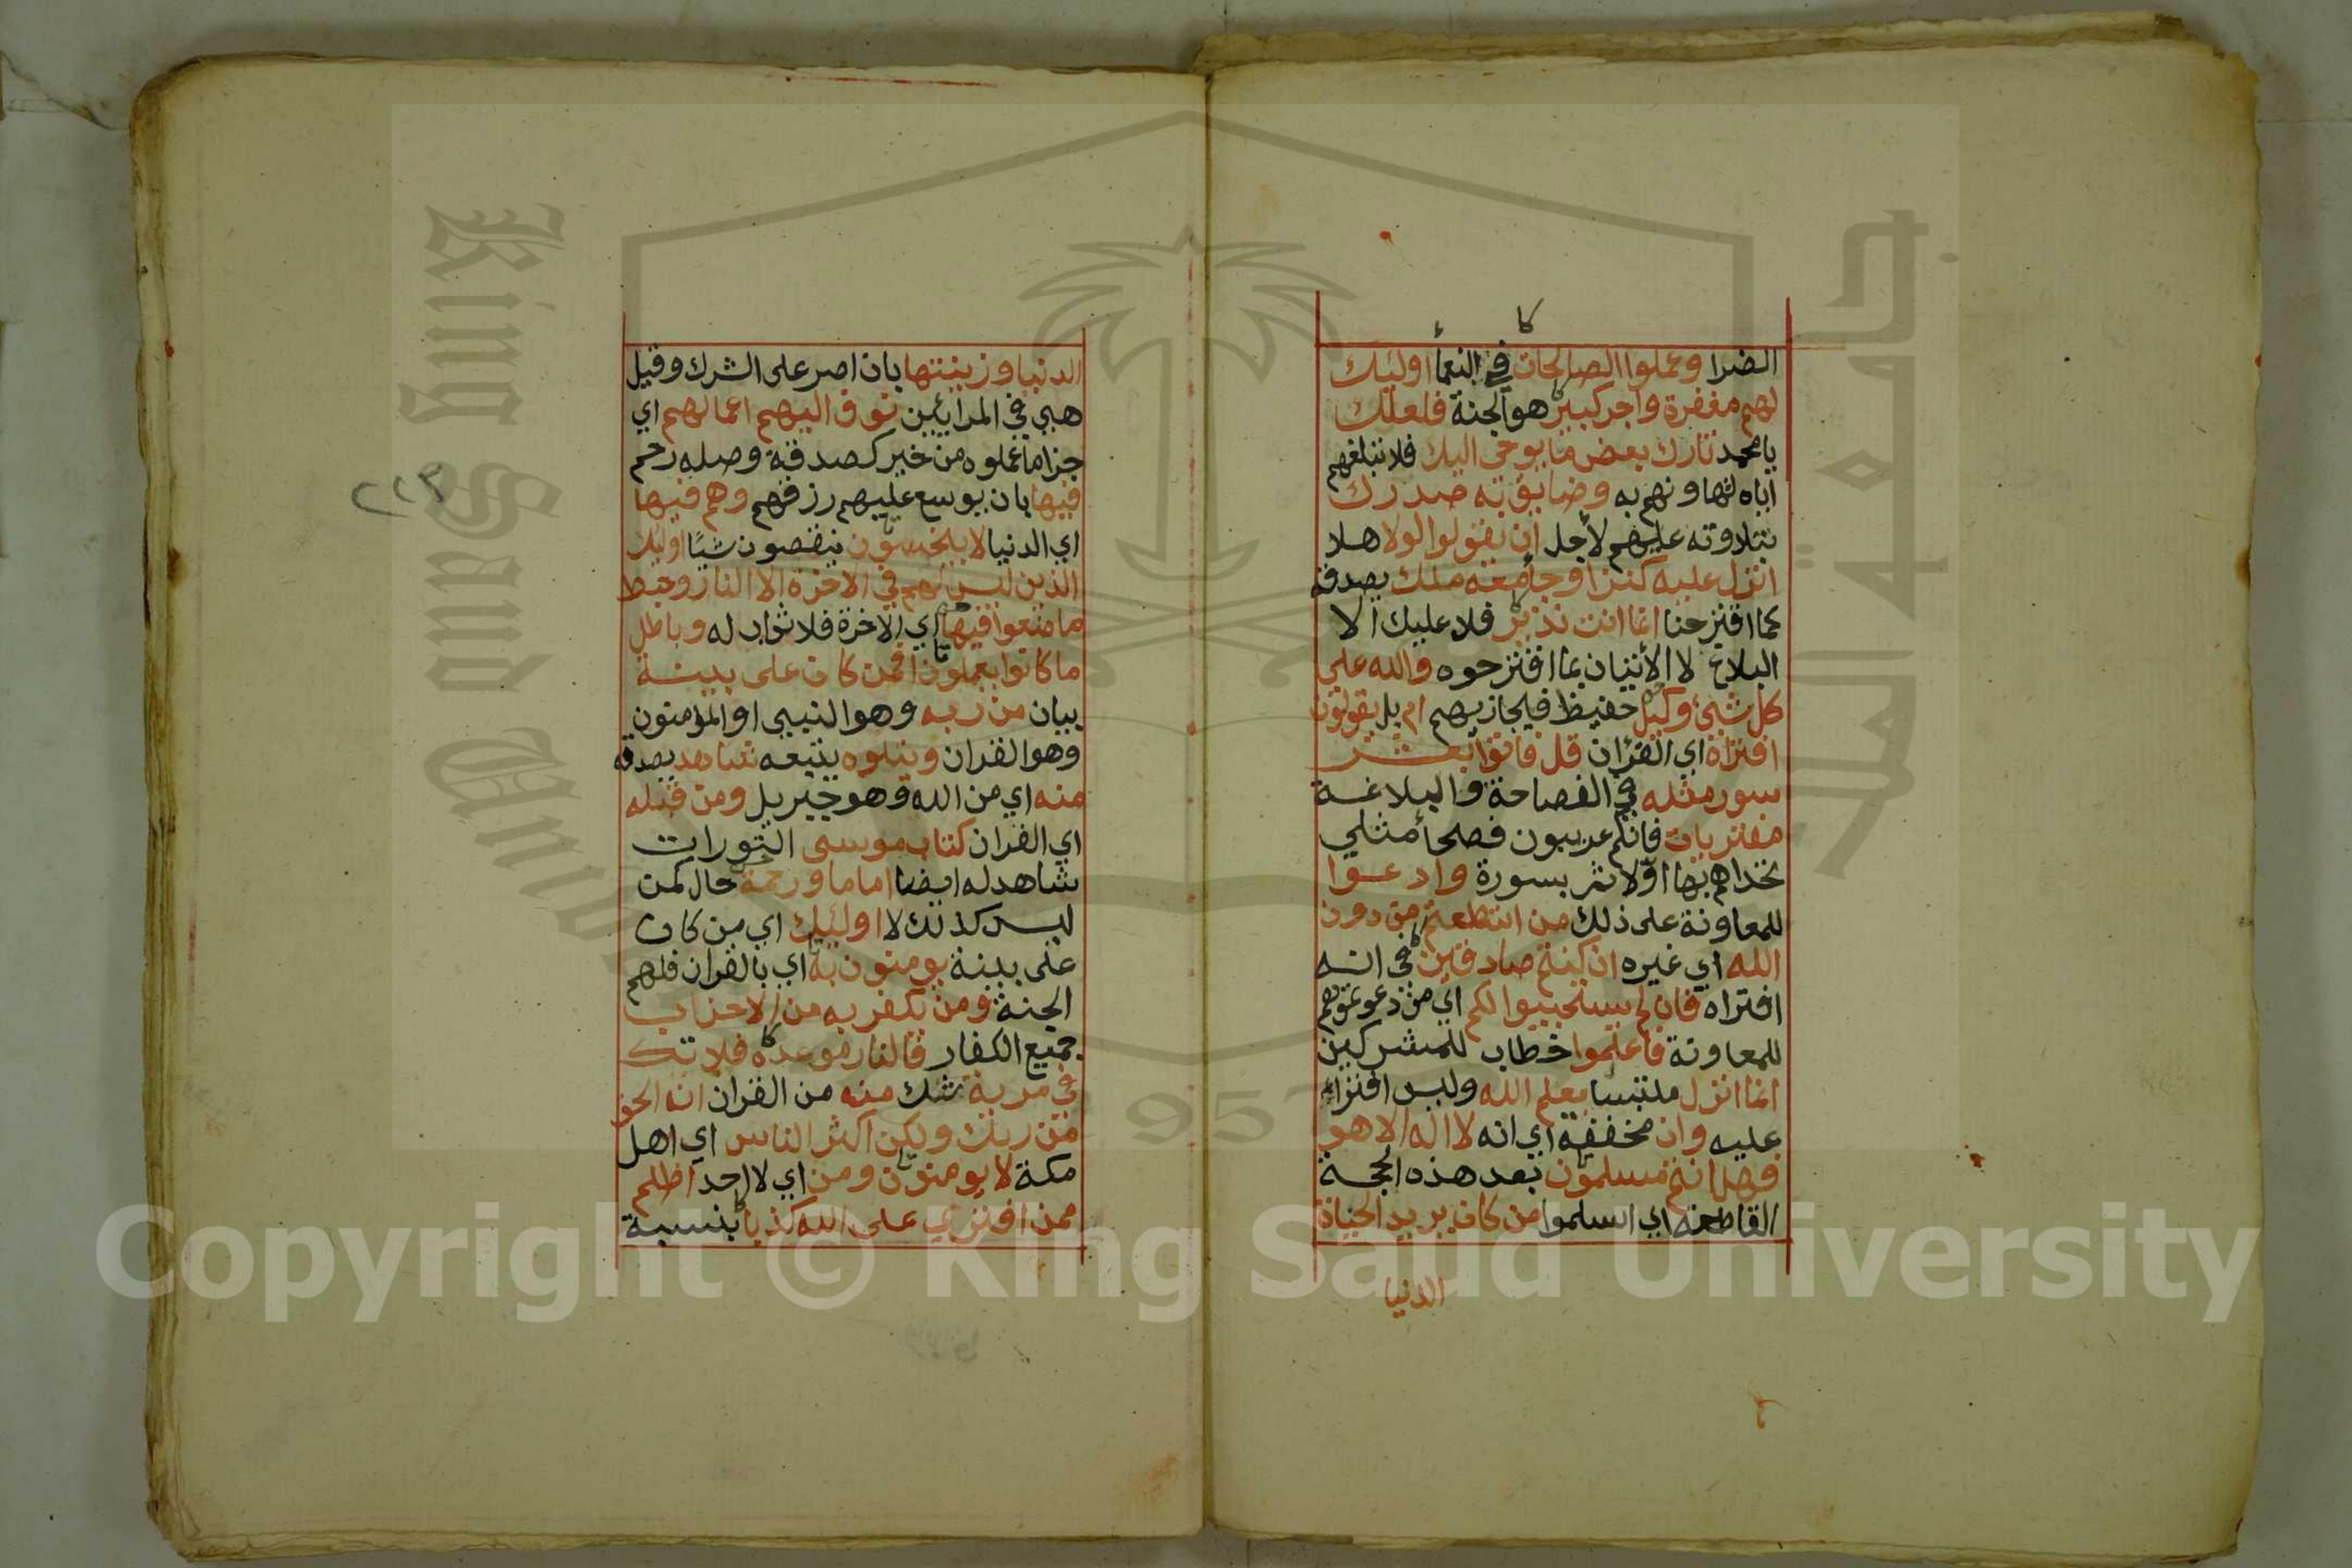 كا
الضرا وعملوا الصالحات في النعما أولئك
لهم مغفرة واجر كبير هو الجنة فلعلك
يا محمد تارك بعض ما يوحى اليك فلا تبلغهم
اياه لتهاونهم به وضايق به صدرك
بتلاوته عليهم لأجل ان يقولوا لولا هلا
انزل عليه كنز او جا معه ملك يصدقه
كما اقترحنا انما انت نذير فلا عليك الا
البلاغ لا الأتيان بما اقترحوه والله على
كل شيئ وكيل حفيظ فيجازيهم ام بل يقولون
افتراه اي القران قل فاتوا بعشر
سور مثله في الفصاحة والبلاغة
مفتريات فانكم عربيون فصحأ مثلي
تحداهم بها اوّلا ثم بسورة وادعوا
للمعاونة على ذلك من استطعتم من دون
الله اي غيره ان كنتم صادقين في انه
افتراه فان لم يستجيبوا لكم اي من دعوتموهم
للمعاونة فاعلموا خطاب للمشركين
انما انزل ملتبسا بعلم الله وليس افتراء
عليه وان مخففة اي انه لا اله الا هو
فهل انتم مسلمون بعد هذه الحجة
القاطعة اي اسلموا من كان يريد الحياة
الدنيا
الدنيا وزينتها بان اصر على الشرك وقيل
هي في المرائين نوف اليهم اعمالهم اي
جزا ما عملوه من خير كصدقة وصله رحم
فيها بان يوسع عليهم رزقهم وهم فيها
اي الدنيا لا يبخسون ينقصون شيًا اوليك
الذين ليس لهم في الاخرة الا النار وحبط
ما صنعوا فيها اي الاخرة فلا ثواب له وباطل
ما كانوا يعملون افمن كان على بينة
بيان من ربه وهو النبيي او المؤمنون
وهو القران ويتلوه يتبعه شاهد يصدقه
منه اي من الله وهو جبريل ومن قبله
اي القران كتاب موسى التورات
شاهد له ايضا اماما ورحمة حال كمن
ليس كذلك لا اولئيك اي من كان
على بينة يومنون به اي بالقران فلهم
الجنة ومن يكفر به من الاحزاب
جميع الكفار فالنار موعده فلا تك
في مرية شك منه من القران انه الحق
من ربك ولكن اكثر الناس اي اهل
مكة لا يومنون ومن اي لا احد اظلم
ممن افترى على الله كذبا بنسبة
٢١٣
King Saud Univ
جامعة الملك
Copyright © King Saud University